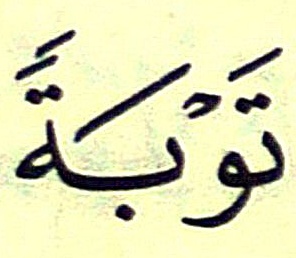 تَوْبَةً